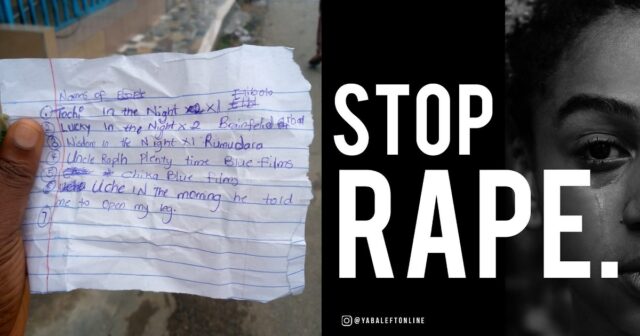 Names of
Elibolo
① Tochi in the Night x1
② Lucky in the Night x 2
③ Wisdom in the Night x1 Rumudara
④ Uncle Raplh Plenty time Blue films
⑤ Chika Plue films
⑥ Uche IN the morning he told
me to open my leg.
⑦
STOP
RAPE.
@YABALEFTONLINE